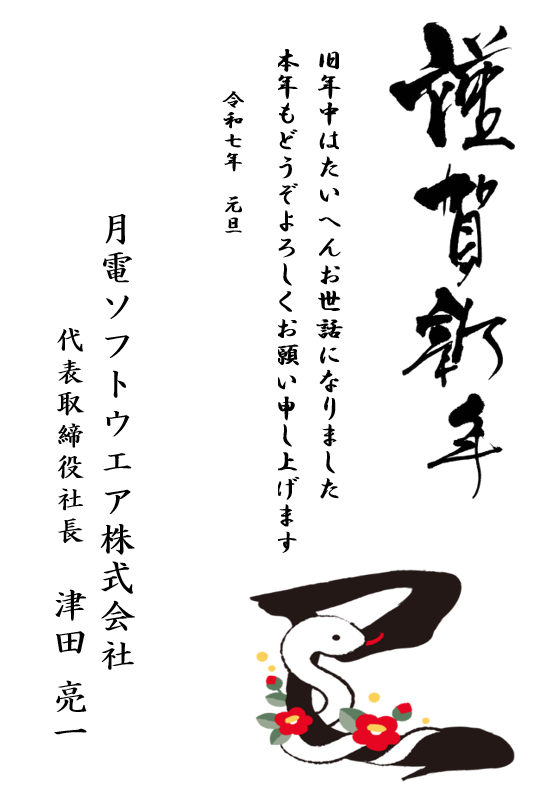 謹賀新年
旧年中はたいへんお世話になりました
本年もどうぞよろしくお願い申し上げます
令和七年 元旦
月電ソフトウエア株式会社
代表取締役社長 津田 亮一
巳